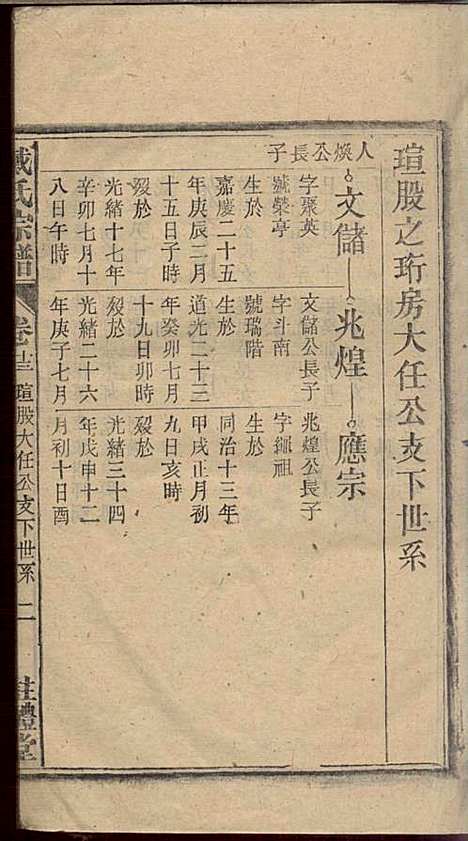 瑄股之珩房大任公支下世系
人煥公長子
文儲 兆煌 應宗
字聚英
號榮亭
生於
嘉慶二十五
年庚辰二月
十五日子時
歿於
光緒十七年
辛卯七月十
八日午時
文儲公長子
字斗南
號瑞階
生於
道光二十三
年癸卯七月
十九日卯時
歿於
光緒二十六
年庚子七月
兆煌公長子
字繩祖
生於
同治十三年
甲戌正月初
九日亥時
歿於
光緒三十四
年戊申十二
月初十日酉
氏宗譜 卷十三 瑄股大任公支下世系 二 禮堂